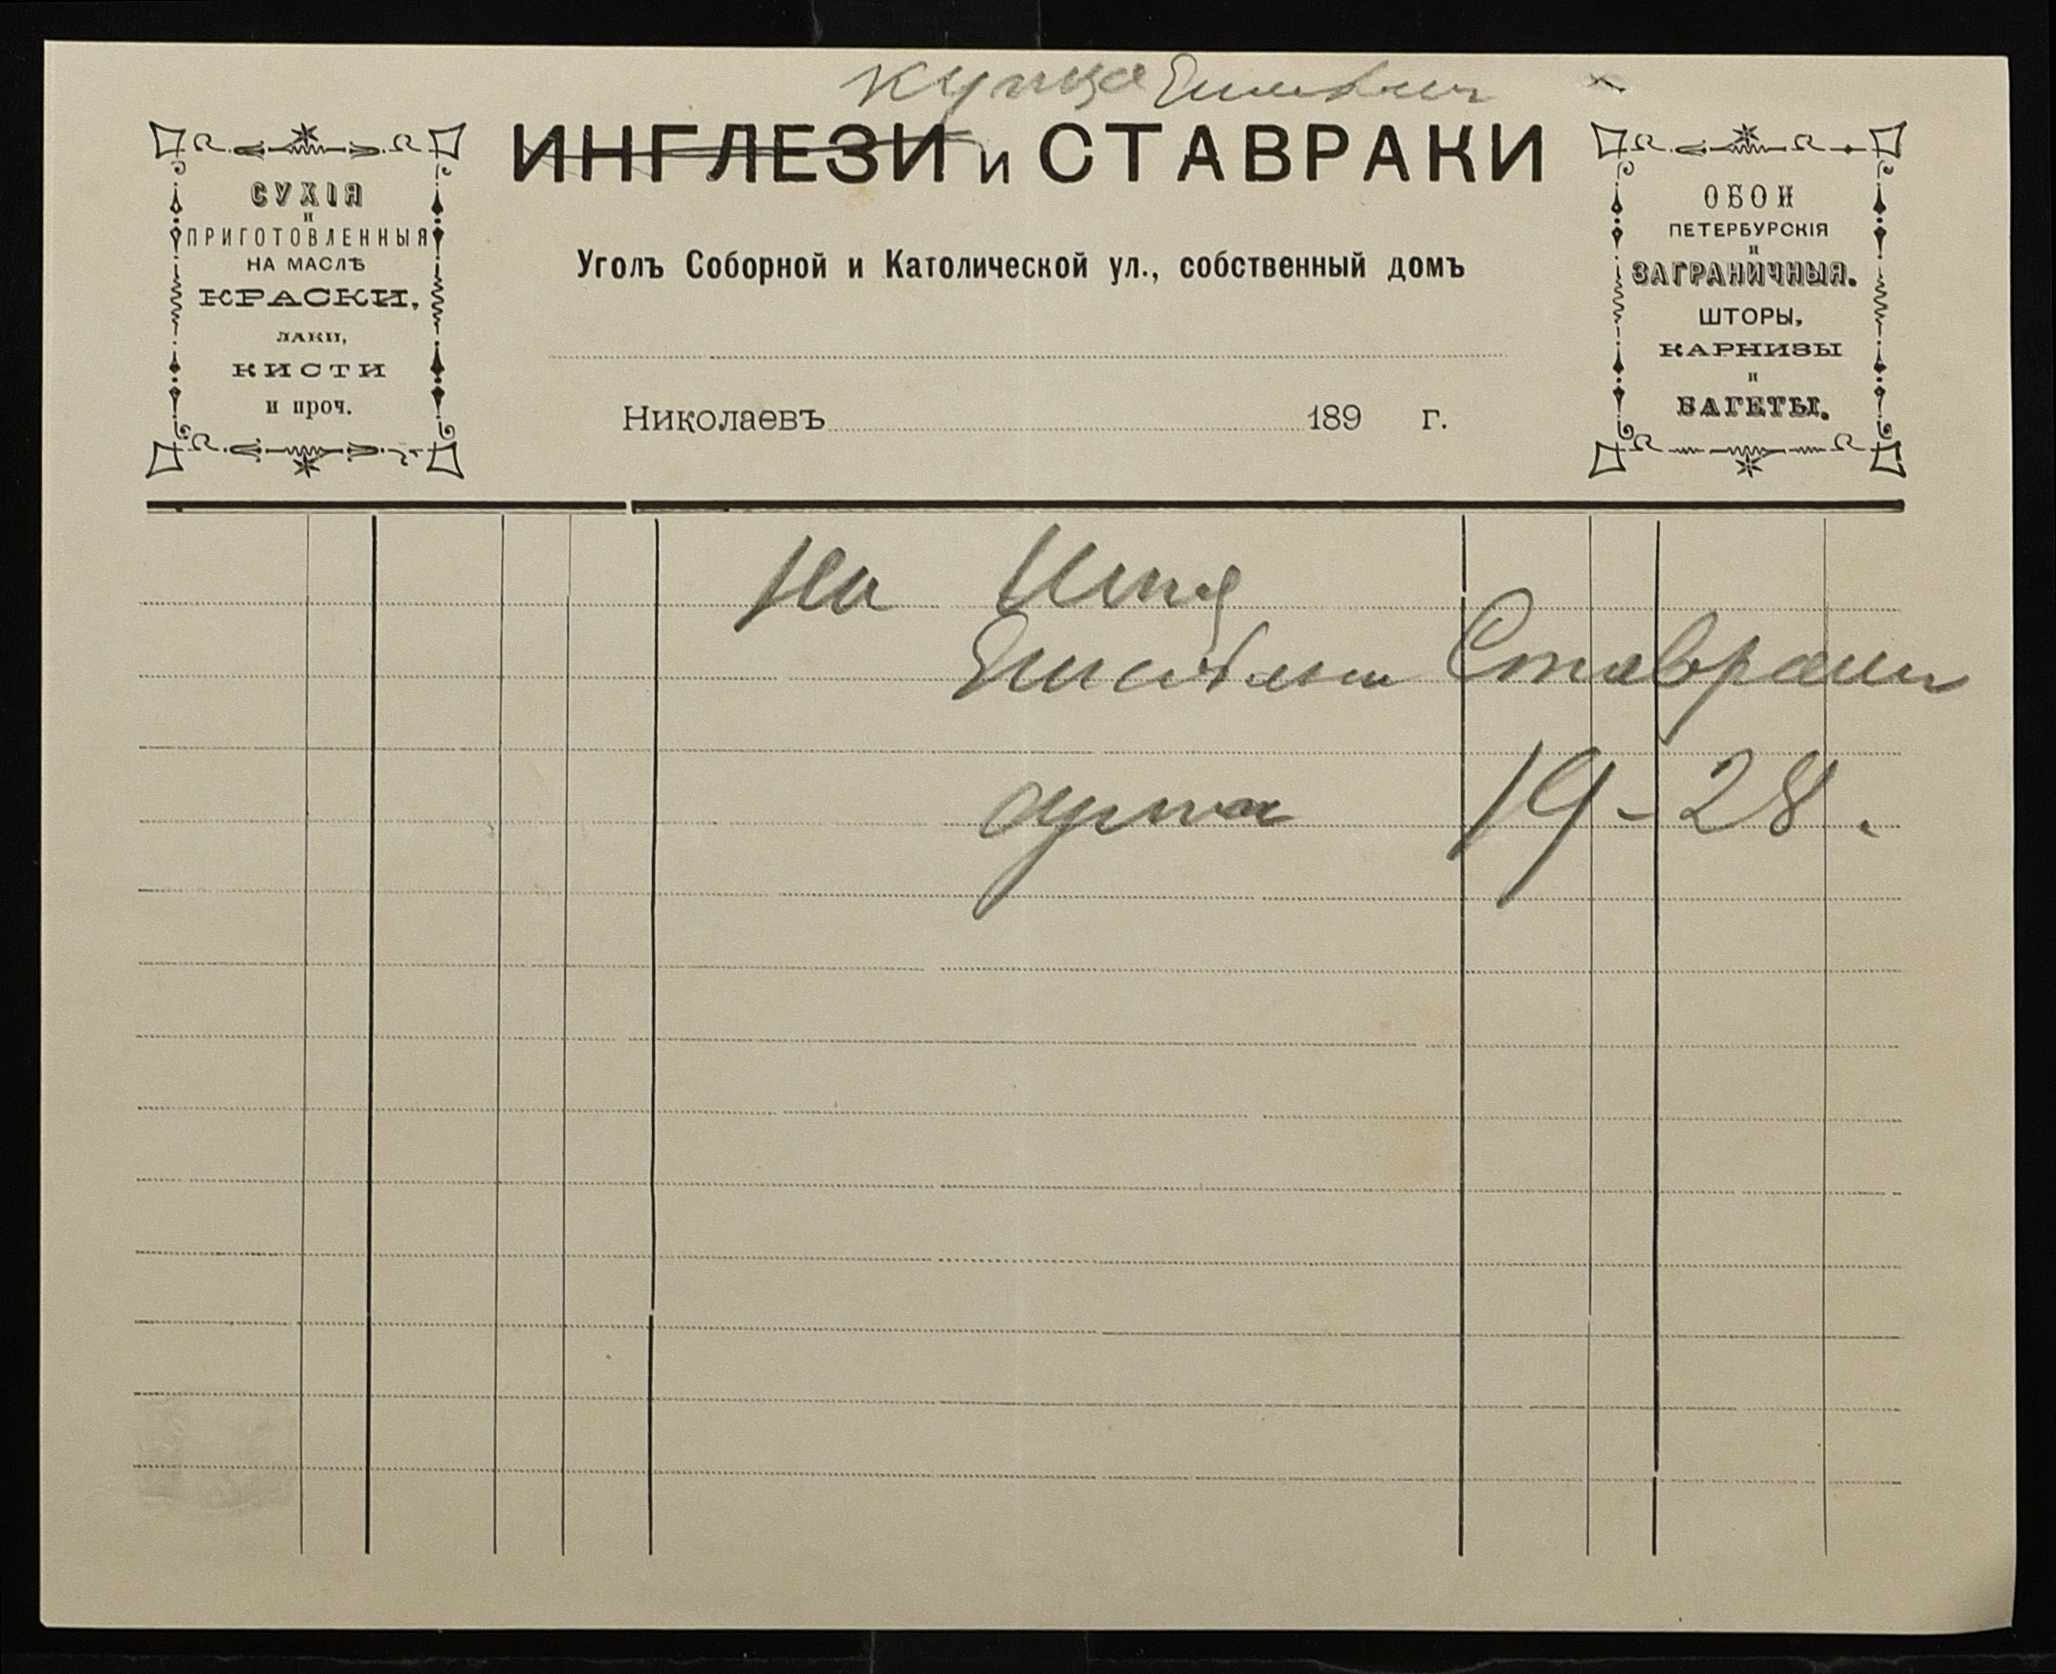 купца
ИНГЛЕЗИ и СТАВРАКИ
Уголъ Соборной и Католической ул., собственный домъ
Николаевъ 189 г.
СУХІЯ
и
ПРИГОТОВЛЕННЫЯ
НА МАСЛѢ
КРАСКИ,
ЛАКИ,
КИСТИ
и проч.
ОБОИ
ПЕТЕРБУРСКІЯ
и
ЗАГРАНИЧНЫЯ.
ШТОРЫ,
КАРНИЗЫ
и
БАГЕТЫ.
На Имя
Ставраки
19-28.